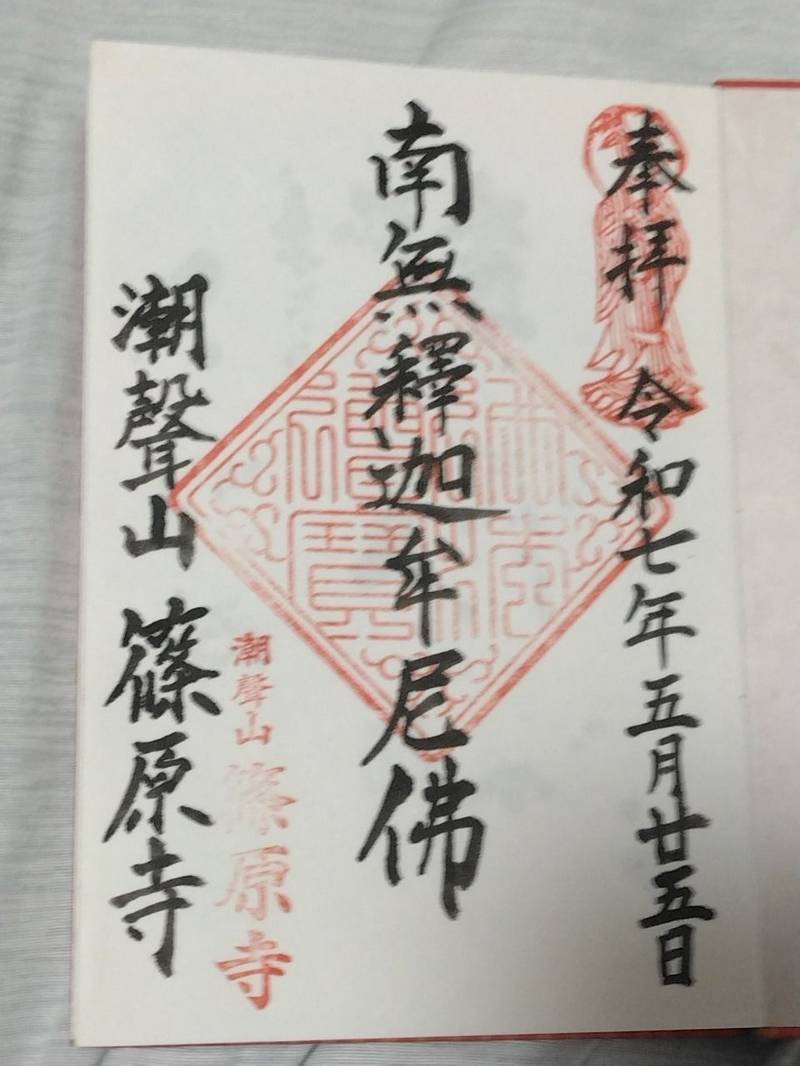 奉拝 令和七年五月廿五日
南無釋迦牟尼佛
潮聲山
篠原寺
潮聲山 篠原寺